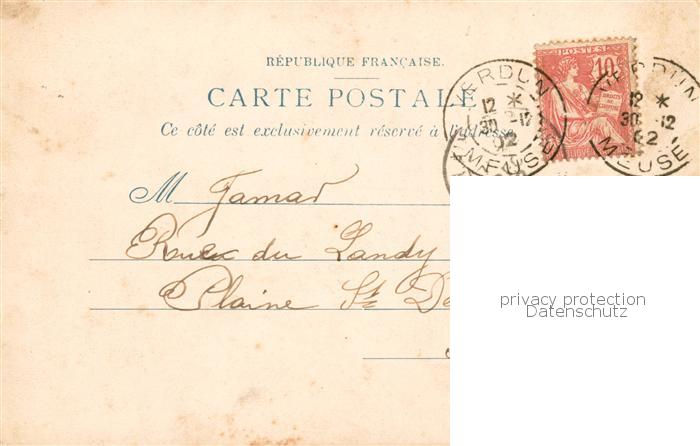 RÉPUBLIQUE FRANÇAISE.
CARTE POSTALE
Ce côté est exclusivement réservé à l'adresse
POSTES
10
DROITS DE L'HOMME
VERDUN
12 *
30 -12
02
MEUSE
VERDUN
12 *
30 -12
02
MEUSE
M Jamar
Rue du Landy
Plaine St D
privacy protection
Datenschutz